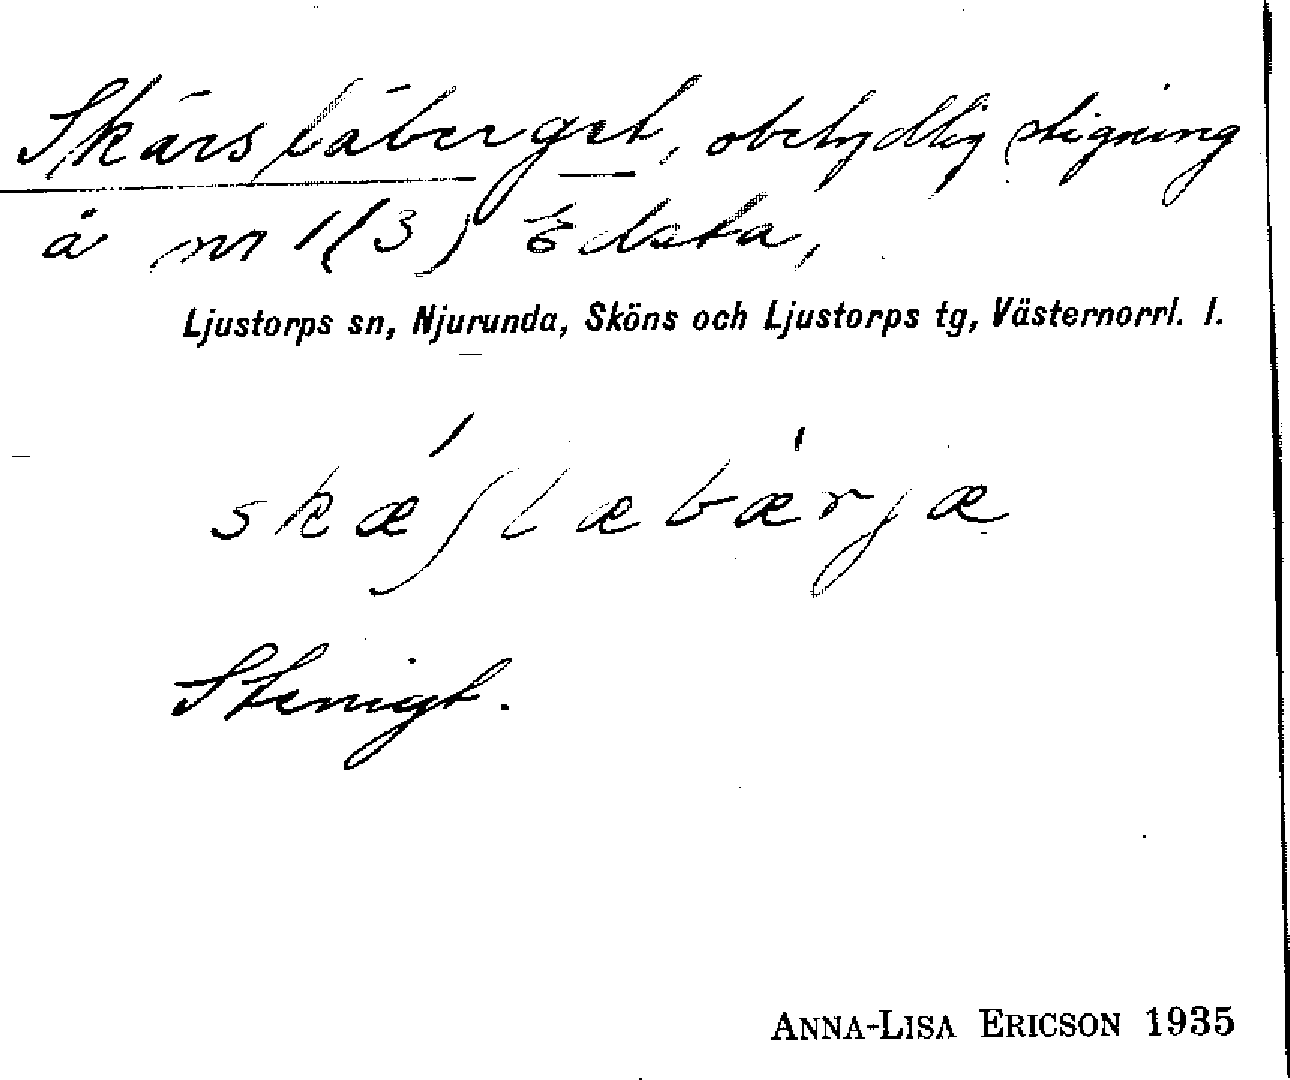 Skärslåberget, obetydlig stigning
å nr 1(3) Edsta,
Ljustorps sn, Njurunda, Sköns och Ljustorps tg, Västernorrl. l.
skæ´ʃlæbæ`rjæ
Stenigt.
ANNA-LISA ERICSON 1935